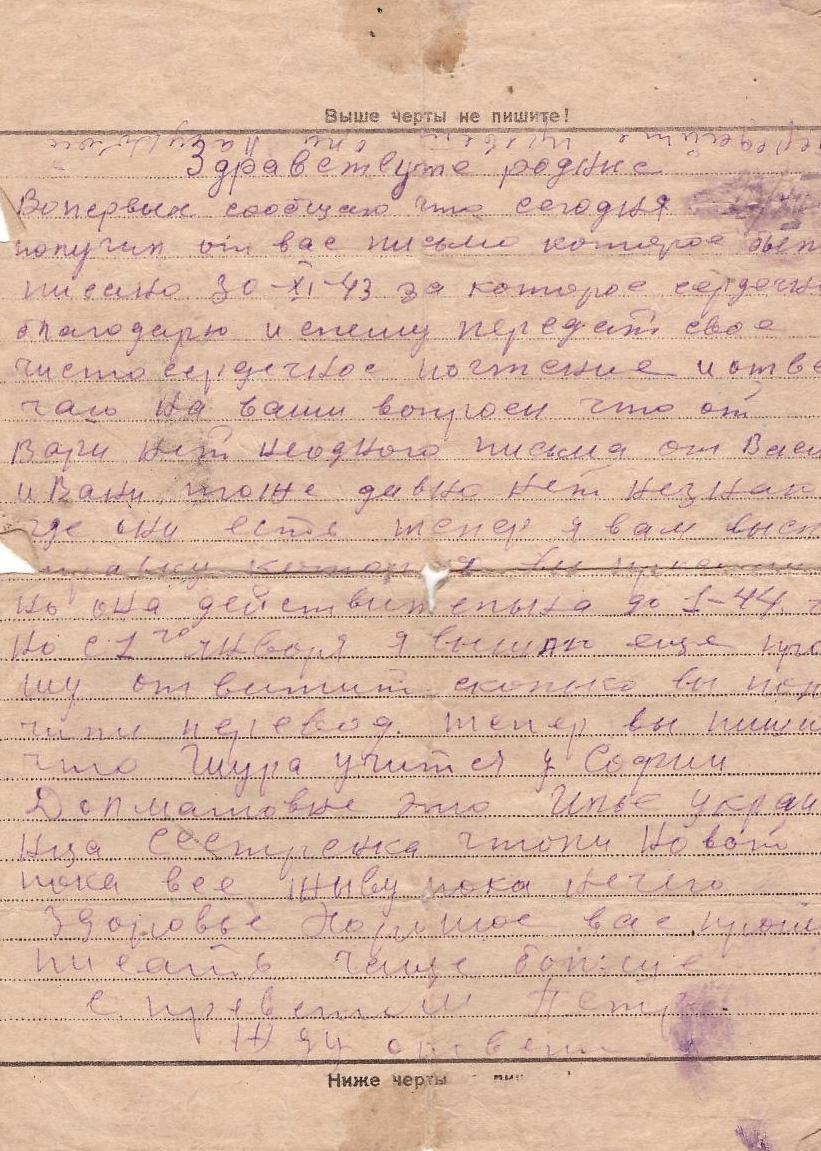 Выше черты не пишите!
Здравствуте родние
Вопервых сообщаю что сегодня
получил от вас письмо которое был
писано 30-XI-43 за которое сердечн
благодарю и спешу передат свое
чистосердечное почтение и отве
чаю на ваши вопроси что от
Вари нет неодного письма от Васи
и Вани тоже давно нет незнаю
где они есть тепер я вам высл
которая вы
но она действительна до 1-44 г
но с 1го января я вышлю еще про
шу ответит сколько вы пол
чили перевод. тепер вы пиши
что Шура учится у Софии
Долматовне это Илье украи
нца сестренка чтоли Новост
пока все живу пока нечего
Здоровье Хорошое вас прош
писать чаще больше
с преветом Петр
ответ
Ниже черты